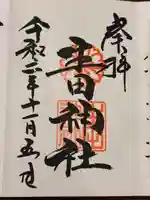 奉拝
神社
令和二年十一月五日